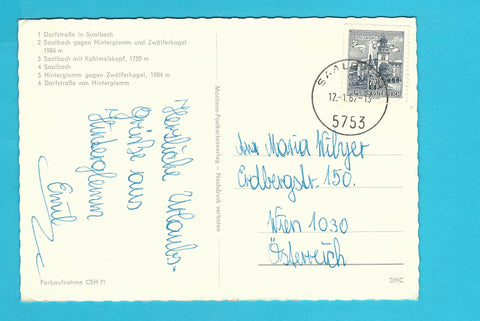 1 Dorfstraße in Saalbach
2 Saalbach gegen Hinterglemm und Zwölferkogel
1984 m
3 Saalbach mit Kohlmaiskopf, 1750 m
4 Saalbach
5 Hinterglemm gegen Zwölferkogel, 1984 m
6 Dorfstraße von Hinterglemm
Herzliche Urlaubs-
grüße aus
Hinterglemm
Emil
Farbaufnahme CSH 71
Postkartenverlag – Nachdruck verboten
12.-1.67-13
5753
Maria
Erdbergstr. 150.
Wien 1030
Österreich
DHC